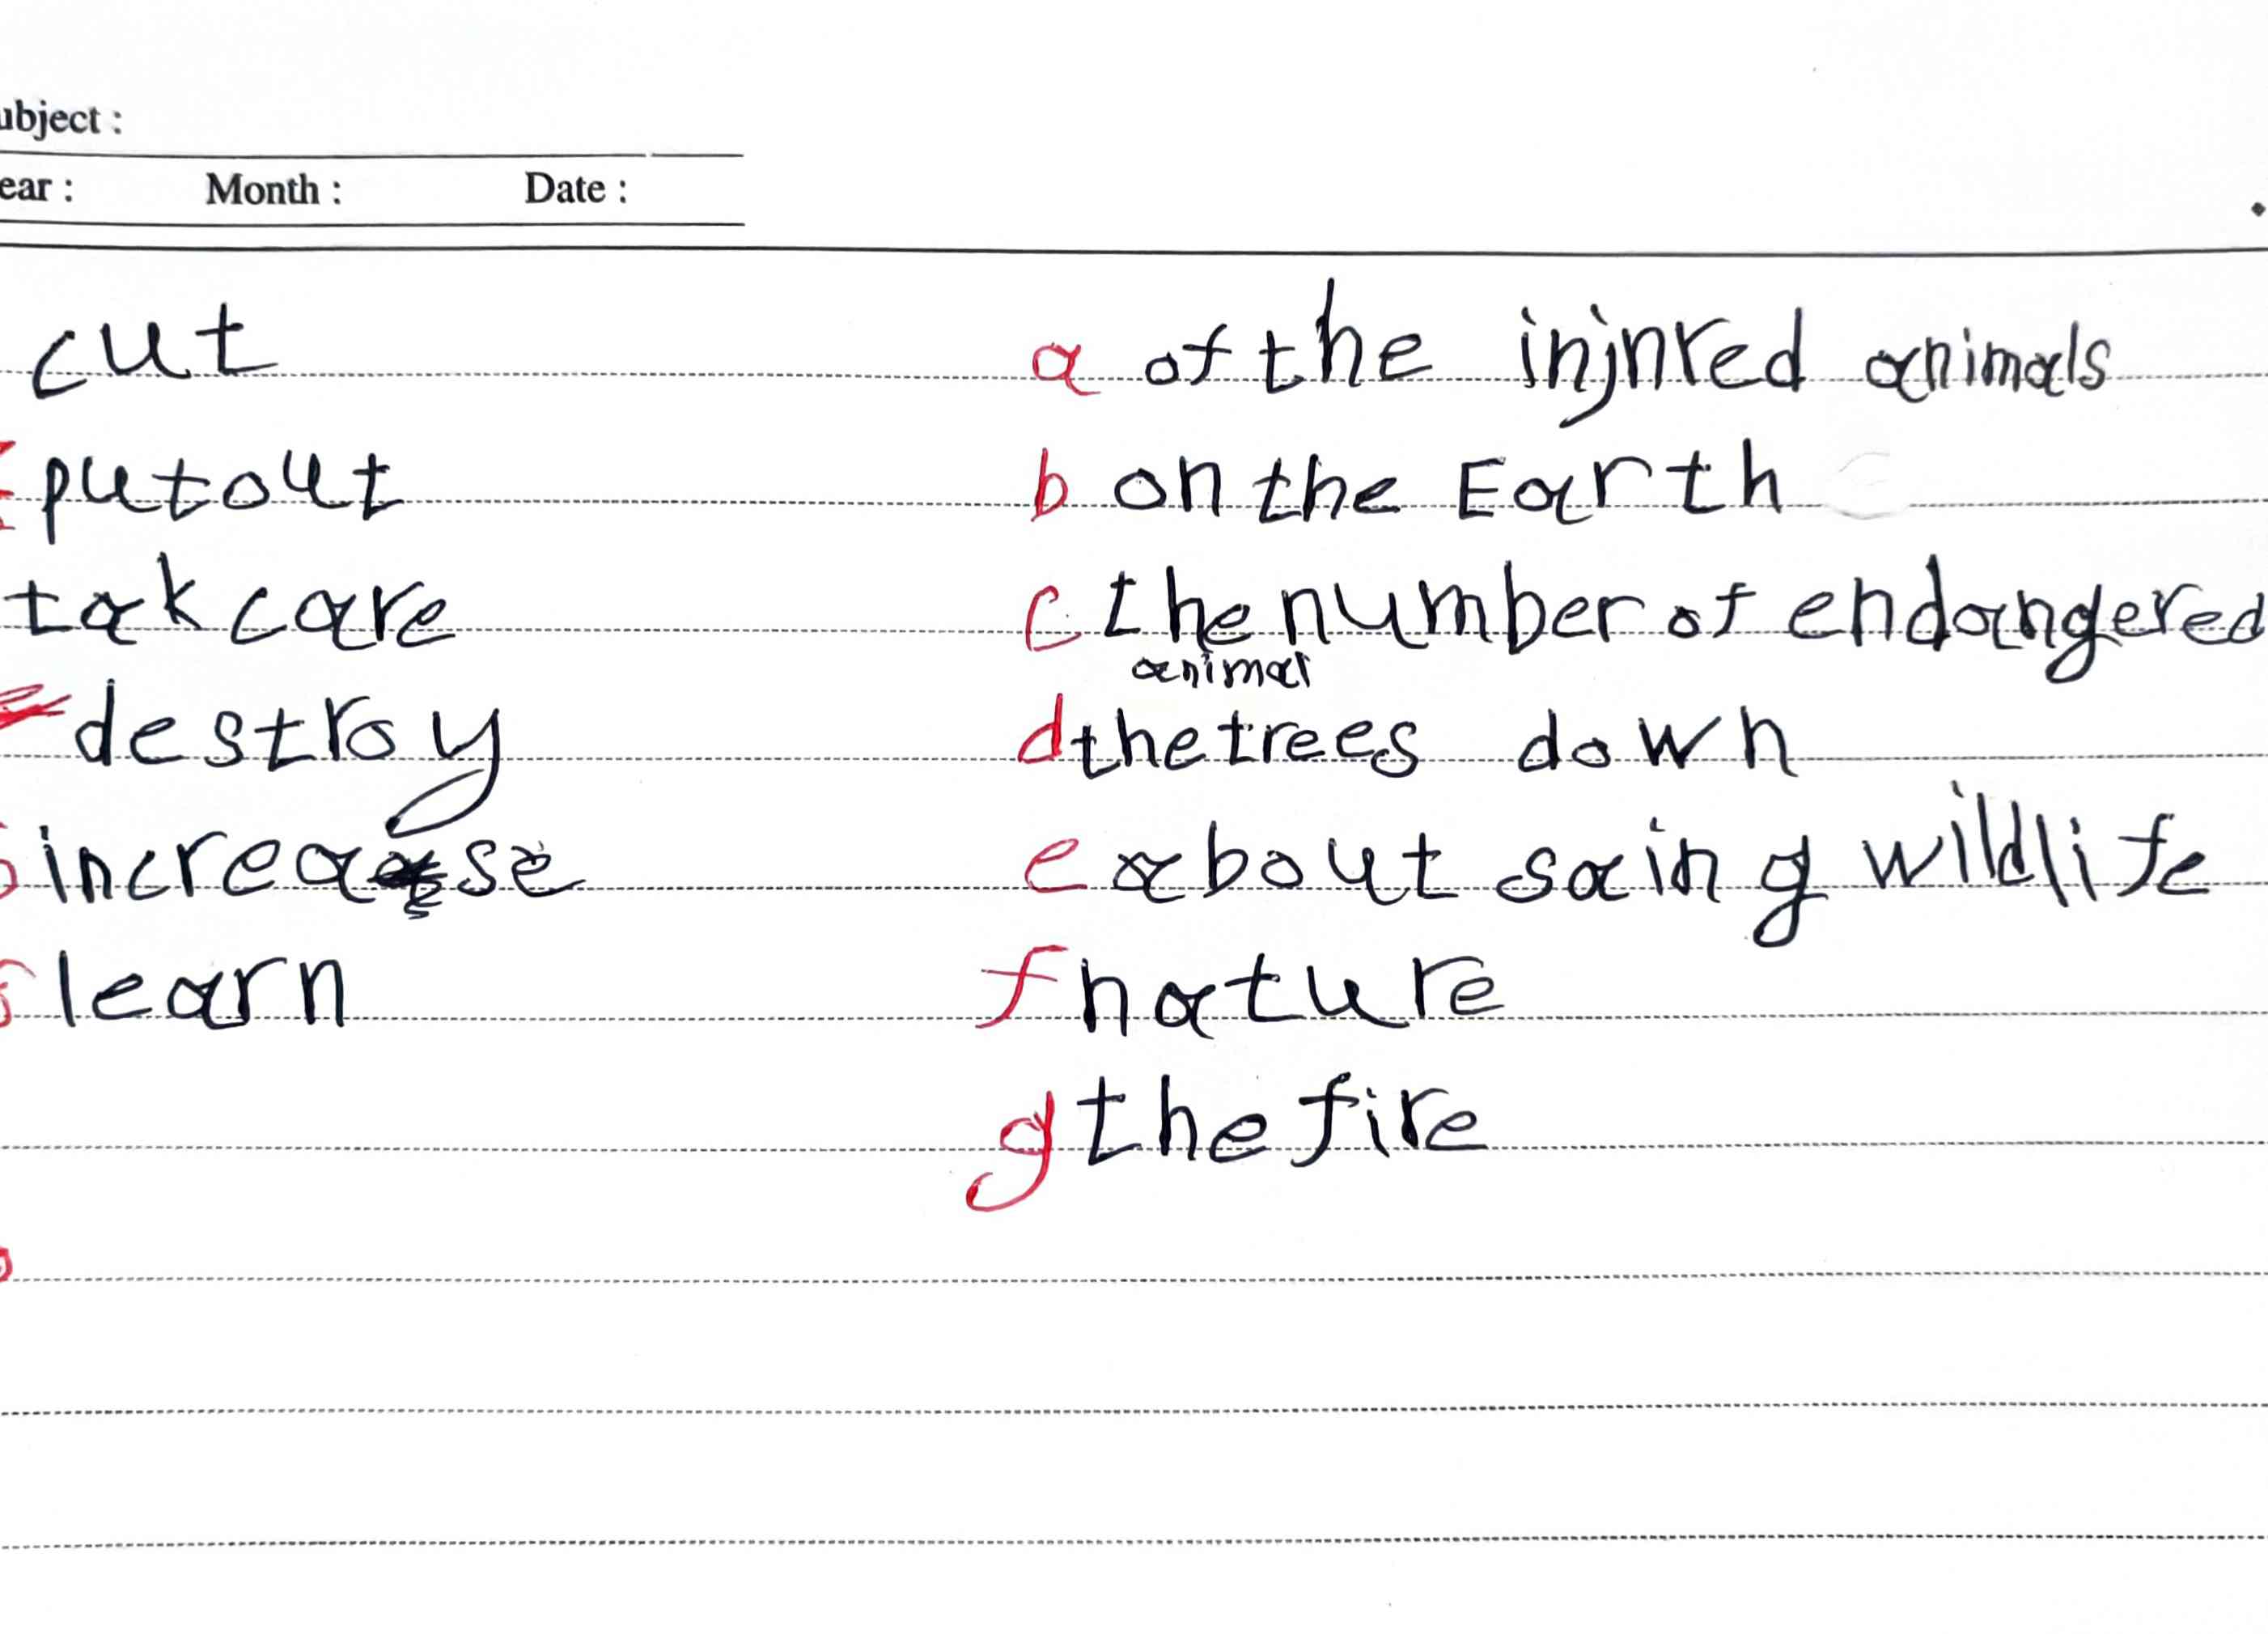 ubject :
ear : Month : Date :
cut a of the injnred animals
putout b on the Earth
tak care c the number of endangered
animal
destroy d the trees down
increase e about saing wildlife
learn f nature
g the fire